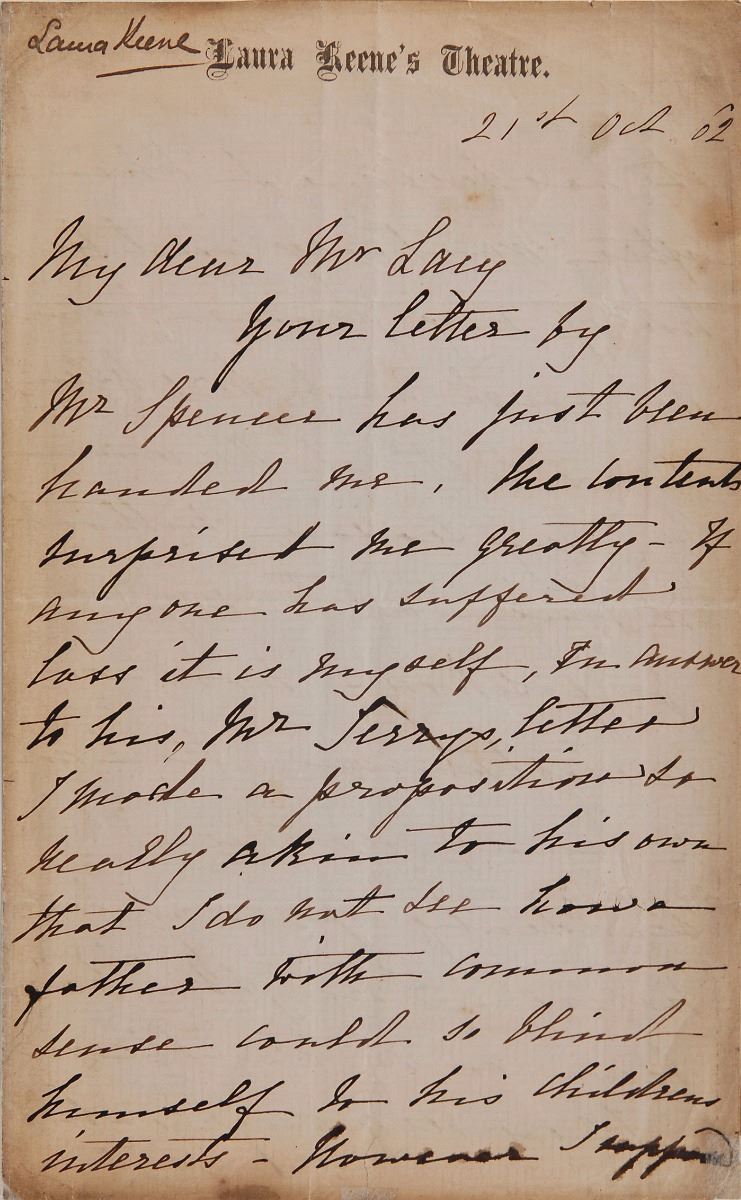 Laura Keene
Laura Keene's Theatre.
21st Oct 62
My dear Mr Lacy
Your letter by
Mr Spencer has just been
handed me, the contents
surprised me greatly - If
anyone has suffered
loss it is myself, In answer
to his, Mr Terrys, letter
I made a proposition so
neally akin to his own
that I do not see how a
father with common
sense could so blind
himself to his childrens
interests - However I